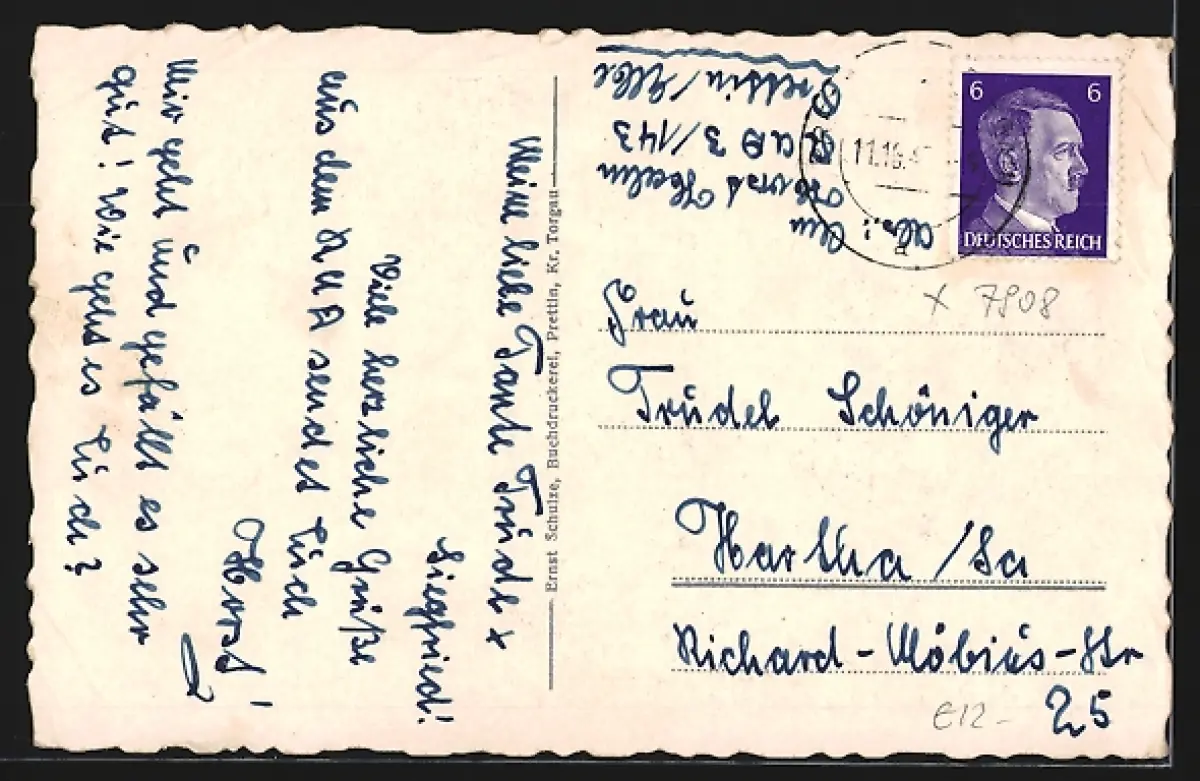 Meine liebe Tante Trude +
Siegfried!
Viele herzliche Grüße
aus dem RAD sendet Euch
Horst!
Mir geht und gefällt es sehr
gut! Wie geht es Euch?
Ernst Schulze, Buchdruckerei, Prettin, Kr. Torgau
Abs.:
Horst
RAD 3/143
Prettin/Elbe
11.10.4
a
6 6
DEUTSCHES REICH
x 7908
Frau
Trudel Schöniger
Hartha/Sa
Richard-Möbius-Str
25
E12-